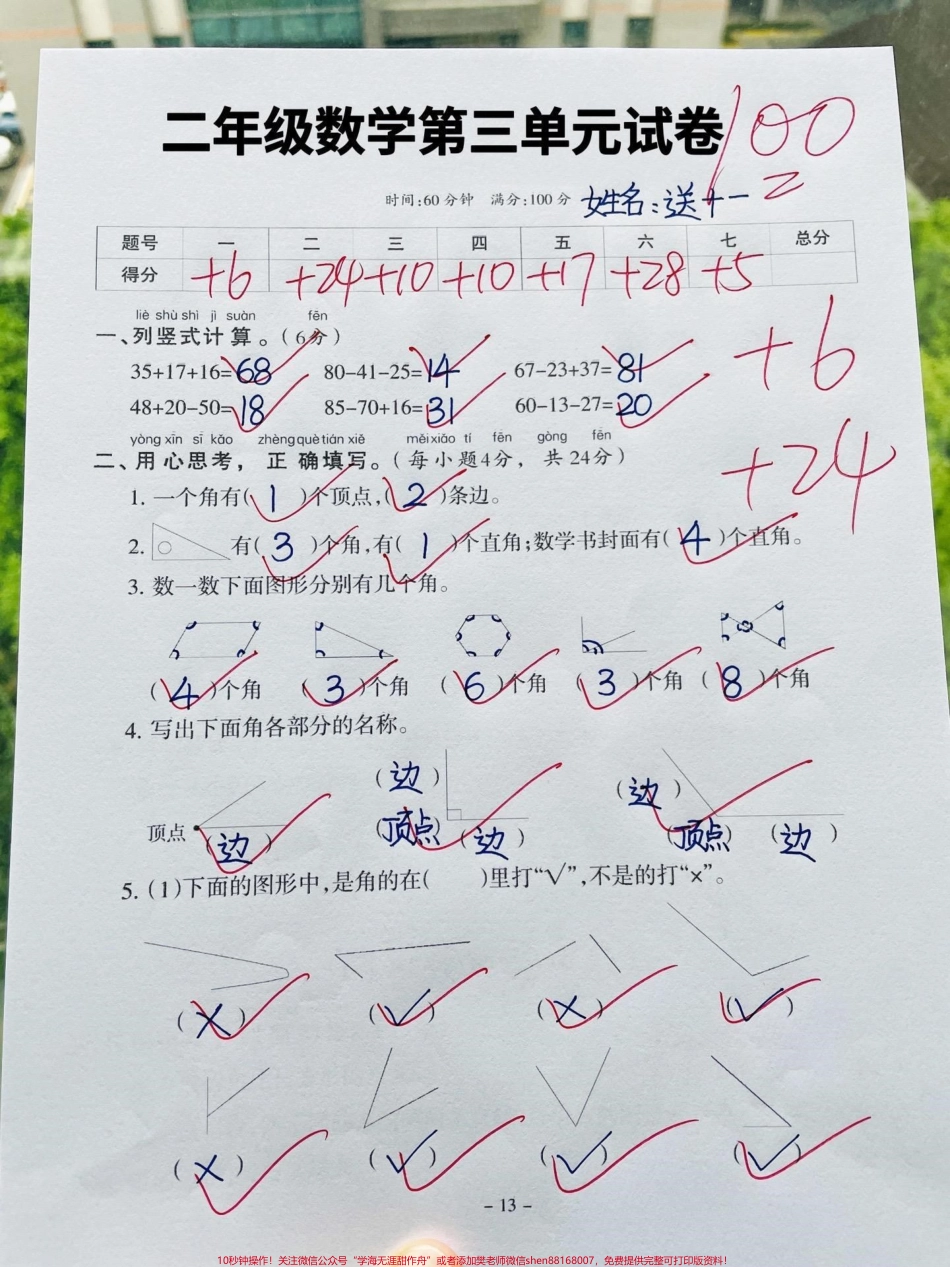 二年级数学第三单元试卷
100
时间:60分钟 满分:100分 姓名:送十一
题号 一 二 三 四 五 六 七 总分
得分 +6 +24 +10 +10 +17 +28 +5
liè shù shì jì suàn fēn
一、列竖式计算。(6分)
+6
35+17+16=68 80-41-25=14 67-23+37=81
48+20-50=18 85-70+16=31 60-13-27=20
yòng xīn sī kǎo zhèng què tián xiě měi xiǎo tí fēn gòng fēn
二、用心思考，正确填写。(每小题4分，共24分)
+24
1. 一个角有(1)个顶点,(2)条边。
2. 有(3)个角,有(1)个直角;数学书封面有(4)个直角。
3. 数一数下面图形分别有几个角。
(4)个角 (3)个角 (6)个角 (3)个角 (8)个角
4. 写出下面角各部分的名称。
(边) (边)
顶点 (边) (顶点) (边) (顶点) (边)
5. (1)下面的图形中,是角的在( )里打“√”,不是的打“×”。
(×) (√) (×) (√)
(×) (√) (√) (√)
- 13 -
10秒钟操作！关注微信公众号“学海无涯甜作舟”或者添加樊老师微信shen88168007，免费提供完整可打印版资料！